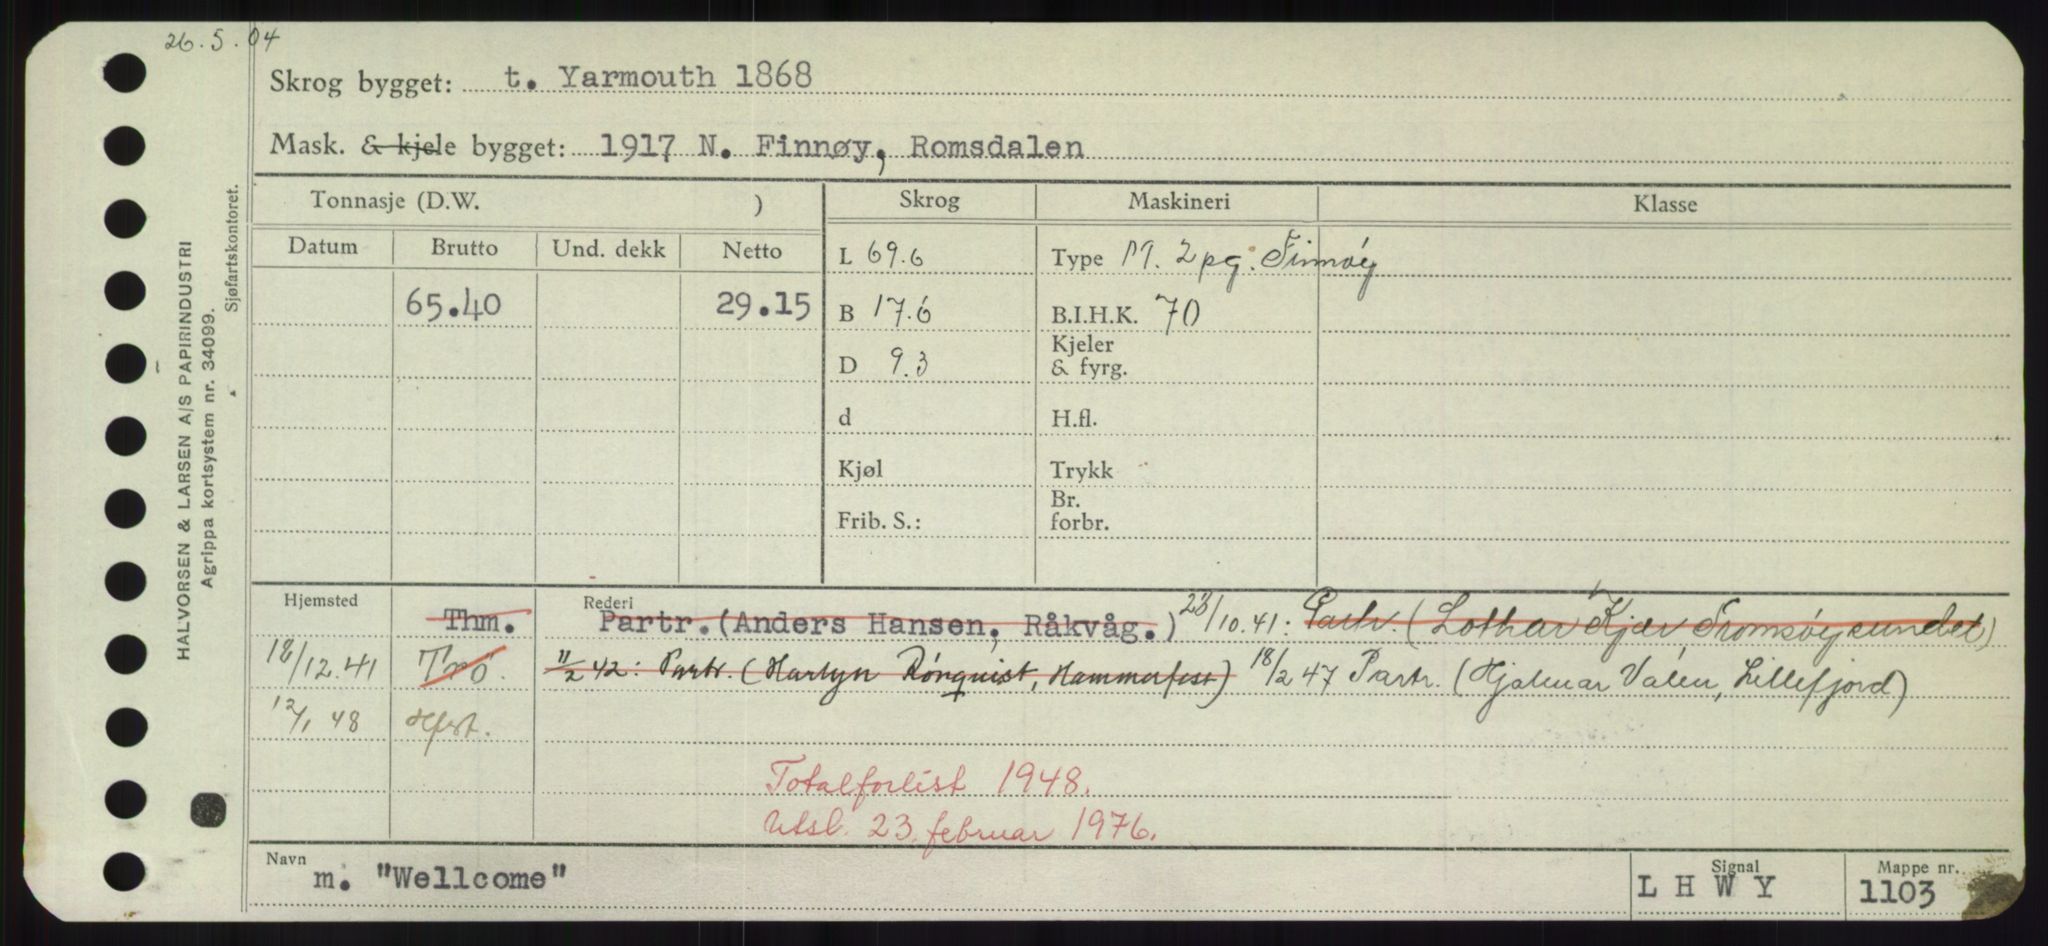 26.5.04
Skrog bygget: t. Yarmouth 1868
Mask. & kjele bygget: 1917 N. Finnøy, Romsdalen
Tonnasje (D.W. ) Skrog Maskineri Klasse
Datum Brutto Und. dekk Netto
L 69.6 Type M. 2 pg. Finnøy
65.40 29.15 B 17.6 B.I.H.K. 70
D 9.3 Kjeler & fyrg.
d H.fl.
Kjøl Trykk
Frib. S.: Br. forbr.
Hjemsted Rederi
Thm. Partr. (Anders Hansen, Råkvåg.) 23/10.41: Partr. (Lothar Kjær Tromsøysundet)
18/12.41 Trö. 11/2 42: Partr. (Harlyn Rönquist, Hammerfest) 18/2 47 Partr. (Hjalmar Valen, Lillefjord)
12/1 48 Hfst.
Totalforlist 1948.
Utsl. 23. februar 1976.
Navn m. "Wellcome" Signal L H W Y Mappe nr. 1103
HALVORSEN & LARSEN A/S PAPIRINDUSTRI
Agrippa kortsystem nr. 34099.
Sjøfartskontoret.